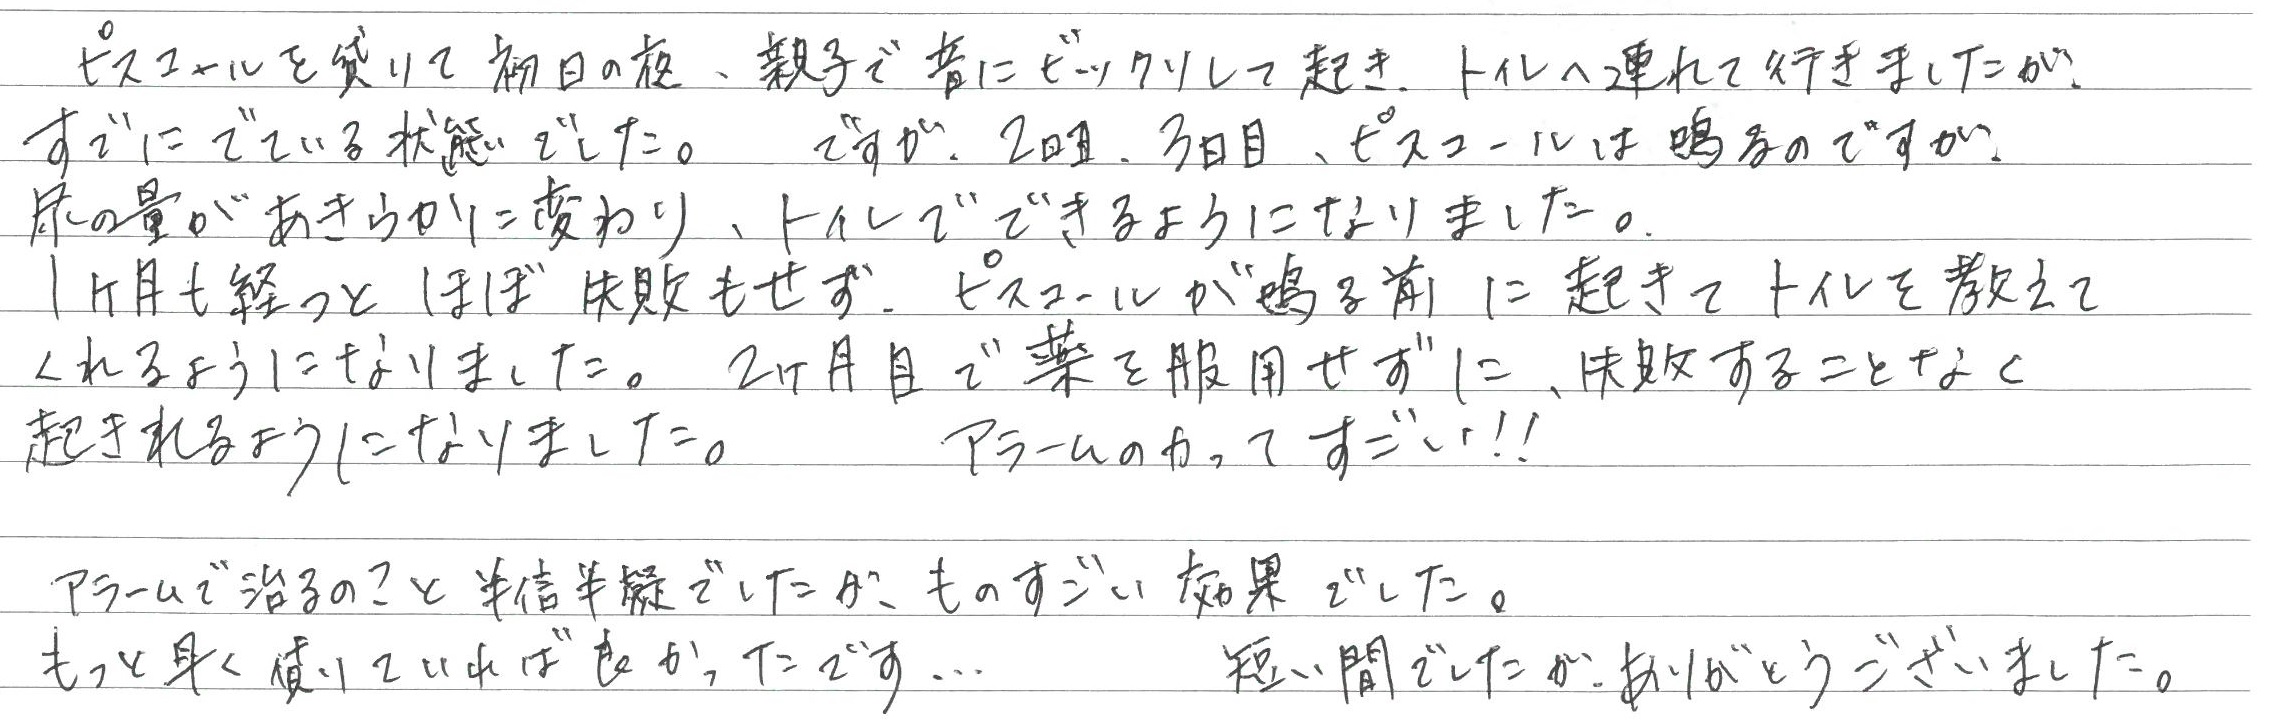 ピスコールを貸りて初日の夜、親子で音にビックリして起き、トイレへ連れて行きましたが、
すでにでている状態でした。 ですが、2日目、3日目、ピスコールは鳴るのですが、
尿の量があきらかに変わり、トイレでできるようになりました。
1ヶ月も経つとほぼ失敗もせず、ピスコールが鳴る前に起きてトイレを教えて
くれるようになりました。 2ヶ月目で薬を服用せずに、失敗することなく
起きれるようになりました。 アラームの力ってすごい!!
アラームで治るの?と半信半疑でしたが、ものすごい効果でした。
もっと早く借りていれば良かったです… 短い間でしたが、ありがとうございました。